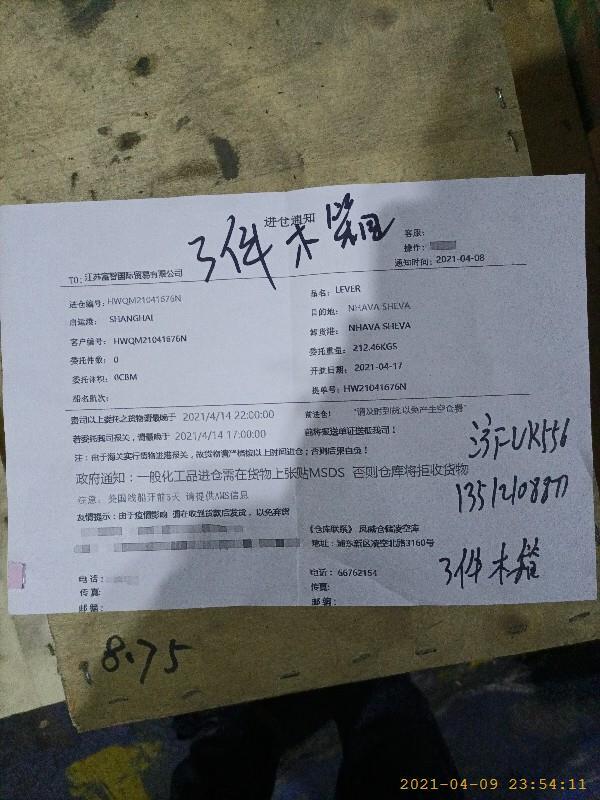 进仓通知
3件木箱
客服:
操作:
TO: 江苏富智国际贸易有限公司
通知时间: 2021-04-08
进仓编号: HWQM21041676N
品名: LEVER
启运港: SHANGHAI
目的地: NHAVA SHEVA
客户编号: HWQM21041676N
卸货港: NHAVA SHEVA
委托件数: 0
委托重量: 212.46KGS
委托体积: 0CBM
开航日期: 2021-04-17
船名航次:
提单号: HW21041676N
贵司以上委托之货物请最晚于 2021/4/14 22:00:00 前进仓! "请及时到货,以免产生空仓费"
若委托我司报关, 请最晚于 2021/4/14 17:00:00 前将报送单证送抵我司!
注: 由于海关实行货物进港报关, 故货物请严格按以上时间进仓; 否则后果自负!
政府通知: 一般化工品进仓需在货物上张贴MSDS 否则仓库将拒收货物
注意: 美国线船开前5天 请提供AMS信息
友情提示: 由于疫情影响 请在收到货款后发货, 以免弃货
UK556
3件木箱
《仓库联系》 凤威仓储凌空库
地址: 浦东新区凌空北路3160号
电话:
电话: 66762154
传真:
传真:
邮编:
邮编:
8.75
2021-04-09 23:54:11